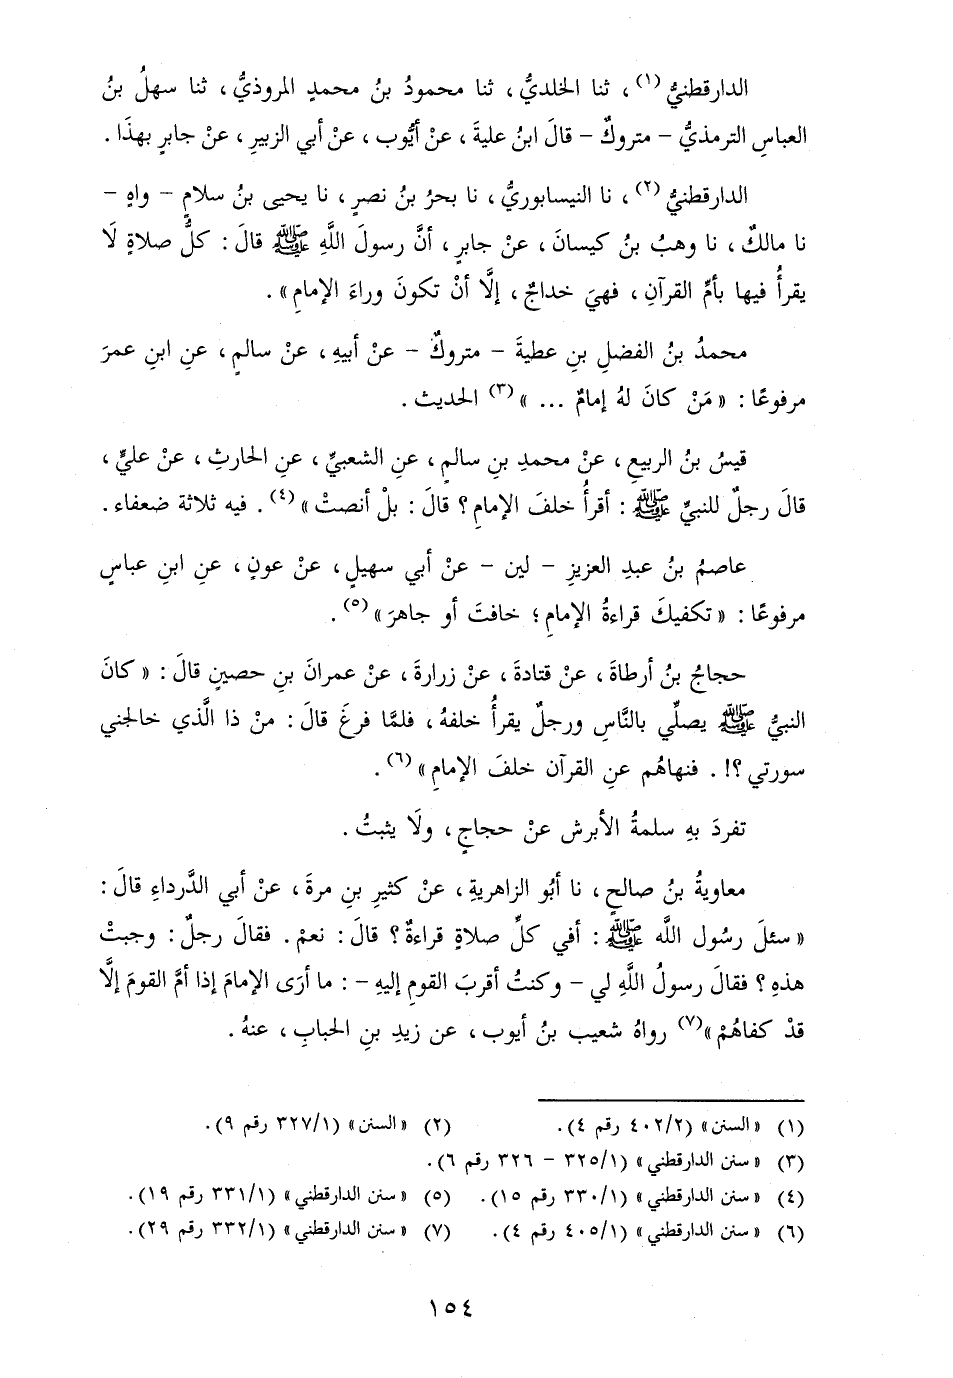 الدارقطنيُّ (١) ، ثنا الخلديُّ ، ثنا محمودُ بنُ محمدٍ المروذيُّ ، ثنا سهلُ بنُ
العباسِ الترمذيُّ – متروكٌ – قالَ ابنُ عليةَ ، عنْ أيُّوب ، عنْ أبي الزبيرِ ، عنْ جابرٍ بهذَا .
الدارقطنيُّ (٢) ، نا النيسابوريُّ ، نا بحرُ بنُ نصرٍ ، نا يحيى بنُ سلامٍ – واهٍ –
نا مالكٌ ، نا وهبُ بنُ كيسانَ ، عنْ جابرٍ ، أنَّ رسولَ اللَّهِ ﷺ قالَ : كلُّ صلاةٍ لَا
يقرأُ فيها بأمِّ القرآنِ ، فهيَ خداجٌ ، إلَّا أنْ تكونَ وراءَ الإمامِ » .
محمدُ بنُ الفضلِ بنِ عطيةَ – متروكٌ – عنْ أبيهِ ، عنْ سالمٍ ، عنِ ابنِ عمرَ
مرفوعًا : « مَنْ كانَ لهُ إمامٌ ... » (٣) الحديث .
قيسُ بنُ الربيعِ ، عنْ محمدِ بنِ سالمٍ ، عنِ الشعبيِّ ، عنِ الحارثِ ، عنْ عليٍّ ،
قالَ رجلٌ للنبيِّ ﷺ : أقرأُ خلفَ الإمامِ ؟ قالَ : بلْ أنصتْ » (٤) . فيه ثلاثة ضعفاء .
عاصمُ بنُ عبدِ العزيزِ – لين – عنْ أبي سهيلٍ ، عنْ عونٍ ، عنِ ابنِ عباسٍ
مرفوعًا : « تكفيكَ قراءةُ الإمامِ ؛ خافتَ أو جاهرَ » (٥) .
حجاجُ بنُ أرطاةَ ، عنْ قتادةَ ، عنْ زرارةَ ، عنْ عمرانَ بنِ حصينٍ قالَ : « كانَ
النبيُّ ﷺ يصلِّي بالنَّاسِ ورجلٌ يقرأُ خلفهُ ، فلمَّا فرغَ قالَ : منْ ذا الَّذي خالجني
سورتي ؟! . فنهاهُم عنِ القرآن خلفَ الإمامِ » (٦) .
تفردَ بهِ سلمةُ الأبرش عنْ حجاجٍ ، ولَا يثبتُ .
معاويةُ بنُ صالحٍ ، نا أبُو الزاهريةِ ، عنْ كثيرِ بنِ مرةَ ، عنْ أبي الدَّرداءِ قالَ :
« سئلَ رسُول اللَّه ﷺ : أفي كلِّ صلاةٍ قراءةٌ ؟ قالَ : نعمْ . فقالَ رجلٌ : وجبتْ
هذهِ ؟ فقالَ رسولُ اللَّهِ لي – وكنتُ أقربَ القومِ إليهِ – : ما أرَى الإمامَ إذا أمَّ القومَ إلَّا
قدْ كفاهُمْ » (٧) رواهُ شعيب بنُ أيوب ، عن زيدِ بنِ الحبابِ ، عنهُ .
(١) « السنن » (٤٠٢/٢ رقم ٤). (٢) « السنن » (٣٢٧/١ رقم ٩).
(٣) « سنن الدارقطني » (٣٢٥/١ – ٣٢٦ رقم ٦).
(٤) « سنن الدارقطني » (٣٣٠/١ رقم ١٥). (٥) « سنن الدارقطني » (٣٣١/١ رقم ١٩).
(٦) « سنن الدارقطني » (٤٠٥/١ رقم ٤). (٧) « سنن الدارقطني » (٣٣٢/١ رقم ٢٩).
١٥٤